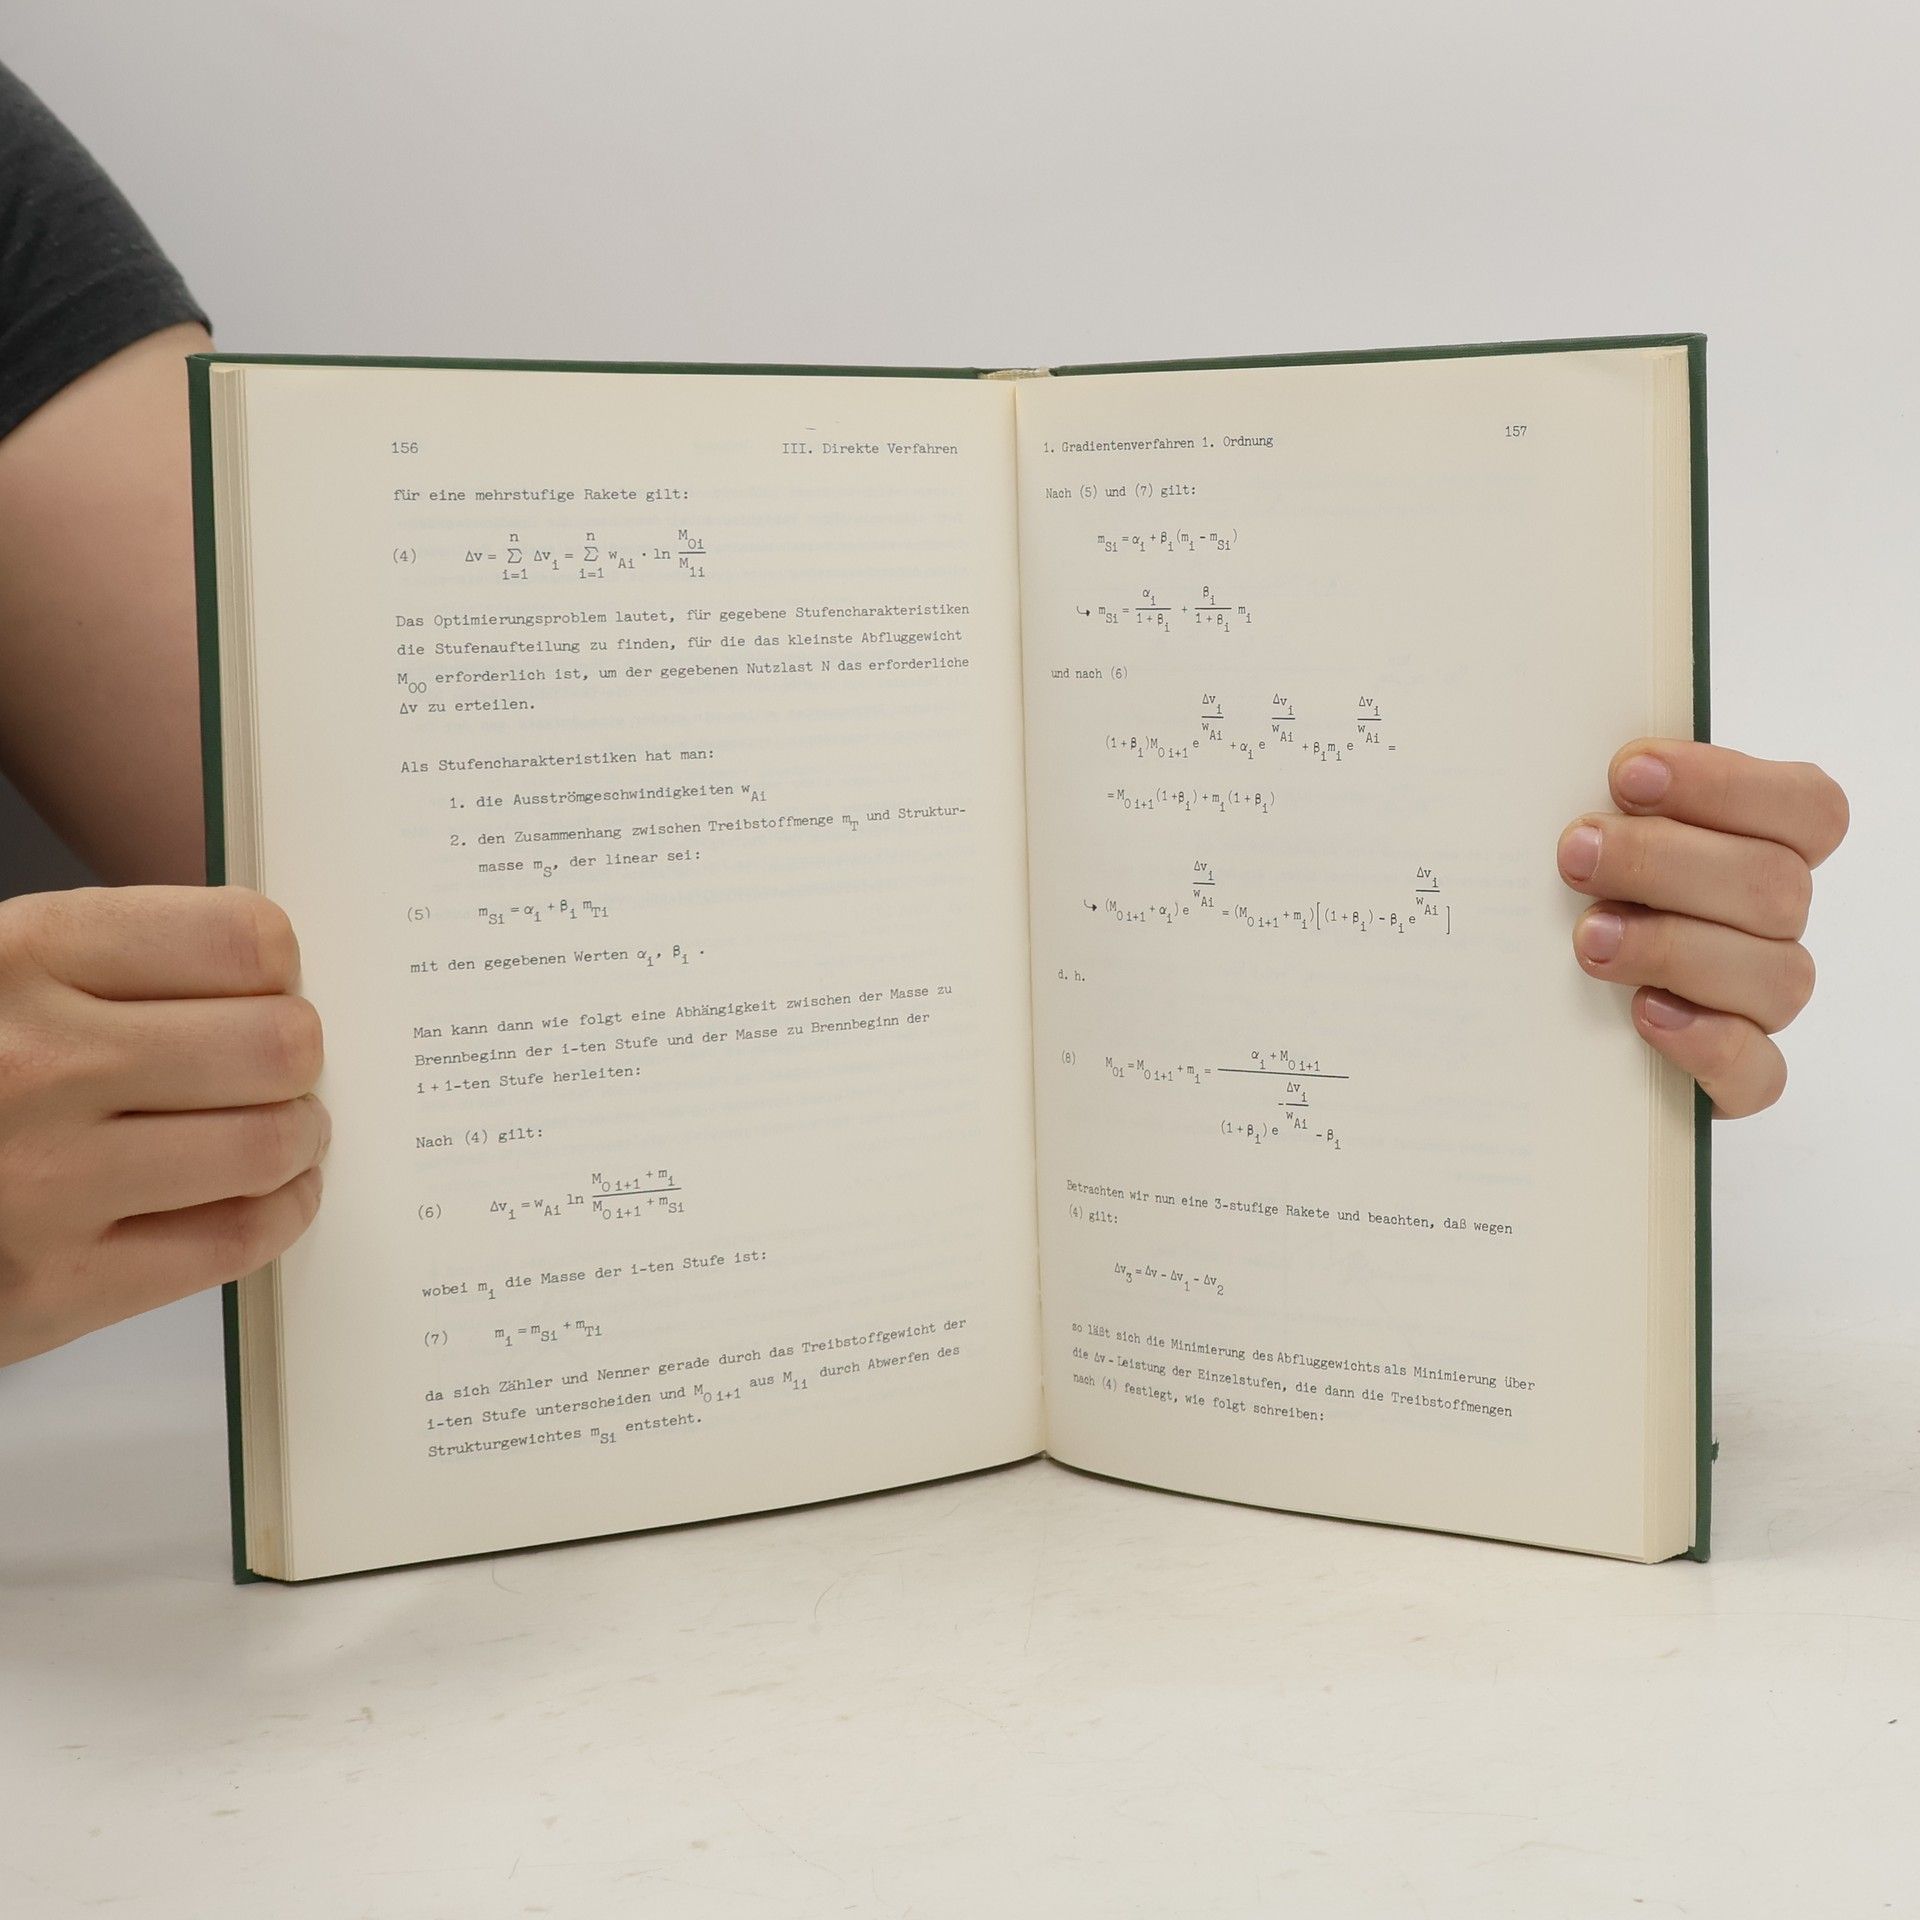 156 III. Direkte Verfahren
für eine mehrstufige Rakete gilt:
(4) Δv = Σ_{i=1}^{n} Δv_i = Σ_{i=1}^{n} w_{Ai} · ln M_{Oi}/M_{1i}
Das Optimierungsproblem lautet, für gegebene Stufencharakteristiken
die Stufenaufteilung zu finden, für die das kleinste Abfluggewicht
M_{OO} erforderlich ist, um der gegebenen Nutzlast N das erforderliche
Δv zu erteilen.
Als Stufencharakteristiken hat man:
1. die Ausströmgeschwindigkeiten w_{Ai}
2. den Zusammenhang zwischen Treibstoffmenge m_T und Struktur-
masse m_S, der linear sei:
(5) m_{Si} = α_i + β_i m_{Ti}
mit den gegebenen Werten α_i, β_i .
Man kann dann wie folgt eine Abhängigkeit zwischen der Masse zu
Brennbeginn der i-ten Stufe und der Masse zu Brennbeginn der
i + 1-ten Stufe herleiten:
Nach (4) gilt:
(6) Δv_i = w_{Ai} ln (M_{O i+1} + m_i)/(M_{O i+1} + m_{Si})
wobei m_i die Masse der i-ten Stufe ist:
(7) m_i = m_{Si} + m_{Ti}
da sich Zähler und Nenner gerade durch das Treibstoffgewicht der
i-ten Stufe unterscheiden und M_{O i+1} aus M_{1i} durch Abwerfen des
Strukturgewichtes m_{Si} entsteht.
1. Gradientenverfahren 1. Ordnung 157
Nach (5) und (7) gilt:
m_{Si} = α_i + β_i (m_i - m_{Si})
↪ m_{Si} = α_i/(1 + β_i) + β_i/(1 + β_i) m_i
und nach (6)
(1 + β_i)M_{O i+1} e^{Δv_i/w_{Ai}} + α_i e^{Δv_i/w_{Ai}} + β_i m_i e^{Δv_i/w_{Ai}} =
= M_{O i+1} (1 + β_i) + m_i (1 + β_i)
↪ (M_{O i+1} + α_i) e^{Δv_i/w_{Ai}} = (M_{O i+1} + m_i)[(1 + β_i) - β_i e^{Δv_i/w_{Ai}}]
d. h.
(8) M_{Oi} = M_{O i+1} + m_i = (α_i + M_{O i+1})/((1 + β_i) e^{-Δv_i/w_{Ai}} - β_i)
Betrachten wir nun eine 3-stufige Rakete und beachten, daß wegen
(4) gilt:
Δv_3 = Δv - Δv_1 - Δv_2
so läßt sich die Minimierung des Abfluggewichts als Minimierung über
die Δv - Leistung der Einzelstufen, die dann die Treibstoffmengen
nach (4) festlegt, wie folgt schreiben: